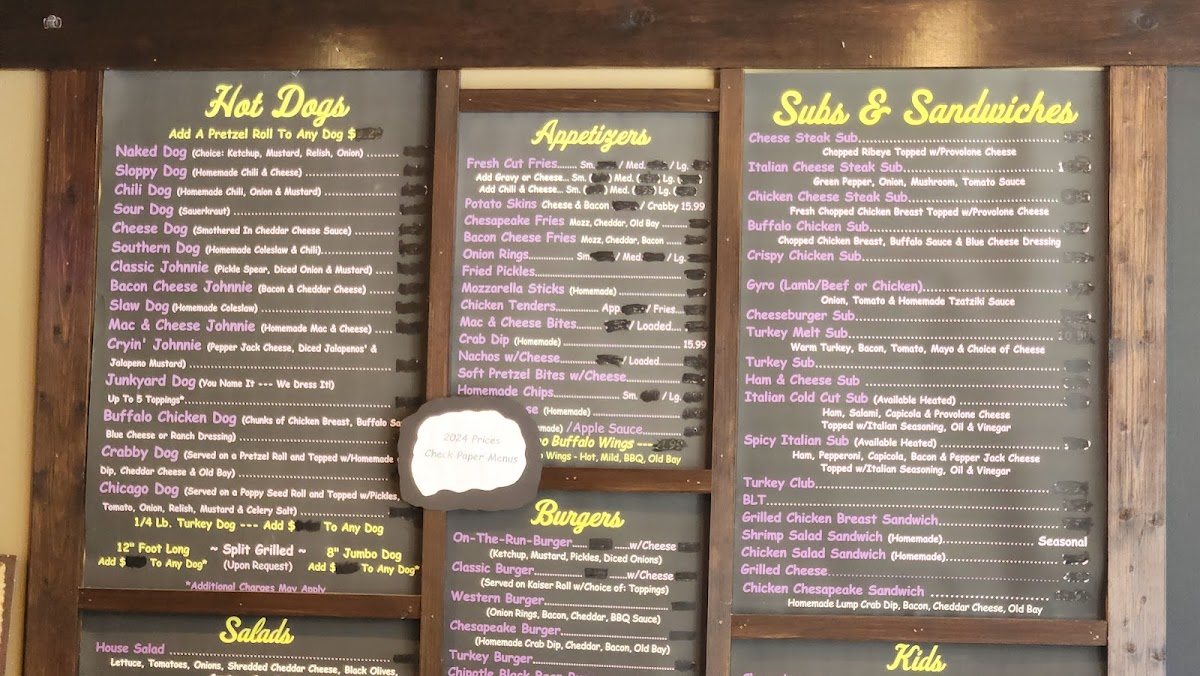 Hot Dogs
Add A Pretzel Roll To Any Dog $
Naked Dog (Choice: Ketchup, Mustard, Relish, Onion)
Sloppy Dog (Homemade Chili & Cheese)
Chili Dog (Homemade Chili, Onion & Mustard)
Sour Dog (Sauerkraut)
Cheese Dog (Smothered In Cheddar Cheese Sauce)
Southern Dog (Homemade Coleslaw & Chili)
Classic Johnnie (Pickle Spear, Diced Onion & Mustard)
Bacon Cheese Johnnie (Bacon & Cheddar Cheese)
Slaw Dog (Homemade Coleslaw)
Mac & Cheese Johnnie (Homemade Mac & Cheese)
Cryin' Johnnie (Pepper Jack Cheese, Diced Jalapenos' &
Jalapeno Mustard)
Junkyard Dog (You Name It --- We Dress It!)
Up To 5 Toppings*
Buffalo Chicken Dog (Chunks of Chicken Breast, Buffalo
Blue Cheese or Ranch Dressing)
Crabby Dog (Served on a Pretzel Roll and Topped w/Homemade
Dip, Cheddar Cheese & Old Bay)
Chicago Dog (Served on a Poppy Seed Roll and Topped w/Pickles,
Tomato, Onion, Relish, Mustard & Celery Salt)
1/4 Lb. Turkey Dog --- Add $ To Any Dog
12" Foot Long ~ Split Grilled ~ 8" Jumbo Dog
Add $ To Any Dog* (Upon Request) Add $ To Any Dog*
*Additional Charges May Apply
Salads
House Salad
Lettuce, Tomatoes, Onions, Shredded Cheddar Cheese, Black Olives,
2024 Prices
Check Paper Menus
Appetizers
Fresh Cut Fries....... Sm. / Med. / Lg.
Add Gravy or Cheese... Sm. ( ) Med. ( ) Lg. ( )
Add Chili & Cheese... Sm. ( ) Med. ( ) Lg. ( )
Potato Skins Cheese & Bacon / Crabby 15.99
Chesapeake Fries Mozz, Cheddar, Old Bay
Bacon Cheese Fries Mozz, Cheddar, Bacon
Onion Rings Sm. / Med. / Lg.
Fried Pickles
Mozzarella Sticks (Homemade)
Chicken Tenders App. / Fries
Mac & Cheese Bites / Loaded
Crab Dip (Homemade) 15.99
Nachos w/Cheese / Loaded
Soft Pretzel Bites w/Cheese
Homemade Chips Sm. / Lg.
(Homemade)
/Apple Sauce
Buffalo Wings ---
Wings - Hot, Mild, BBQ, Old Bay
Burgers
On-The-Run-Burger w/Cheese
(Ketchup, Mustard, Pickles, Diced Onions)
Classic Burger w/Cheese
(Served on Kaiser Roll w/Choice of: Toppings)
Western Burger
(Onion Rings, Bacon, Cheddar, BBQ Sauce)
Chesapeake Burger
(Homemade Crab Dip, Cheddar, Bacon, Old Bay)
Turkey Burger
Chipotle Black Bean
Subs & Sandwiches
Cheese Steak Sub
Chopped Ribeye Topped w/Provolone Cheese
Italian Cheese Steak Sub 1
Green Pepper, Onion, Mushroom, Tomato Sauce
Chicken Cheese Steak Sub
Fresh Chopped Chicken Breast Topped w/Provolone Cheese
Buffalo Chicken Sub
Chopped Chicken Breast, Buffalo Sauce & Blue Cheese Dressing
Crispy Chicken Sub
Gyro (Lamb/Beef or Chicken)
Onion, Tomato & Homemade Tzatziki Sauce
Cheeseburger Sub
Turkey Melt Sub
Warm Turkey, Bacon, Tomato, Mayo & Choice of Cheese
Turkey Sub
Ham & Cheese Sub
Italian Cold Cut Sub (Available Heated)
Ham, Salami, Capicola & Provolone Cheese
Topped w/Italian Seasoning, Oil & Vinegar
Spicy Italian Sub (Available Heated)
Ham, Pepperoni, Capicola, Bacon & Pepper Jack Cheese
Topped w/Italian Seasoning, Oil & Vinegar
Turkey Club
BLT
Grilled Chicken Breast Sandwich
Shrimp Salad Sandwich (Homemade) Seasonal
Chicken Salad Sandwich (Homemade)
Grilled Cheese
Chicken Chesapeake Sandwich
Homemade Lump Crab Dip, Bacon, Cheddar Cheese, Old Bay
Kids